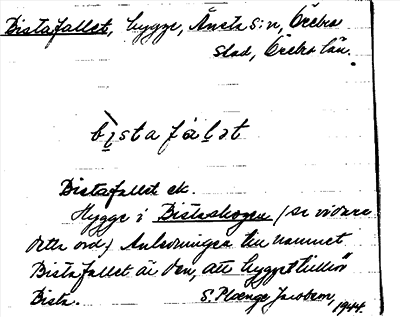 Bistafallet, hygge, Ånsta s:n, Örebro
stad, Örebro län.
bìstafalət
Bistafallet ek.
Hygge i Bistaskogen (se vidare
detta ord) Anledningen till namnet
Bistafallet är den, att hygget tillhör
Bista.
S. Plænge Jacobson, 1944.